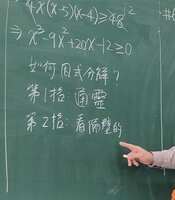 4x(x-5)(x-4)≥48
⇒ x³-9x²+20x-12≥0
如何因式分解？
第1招：通靈
第2招：看隔壁的